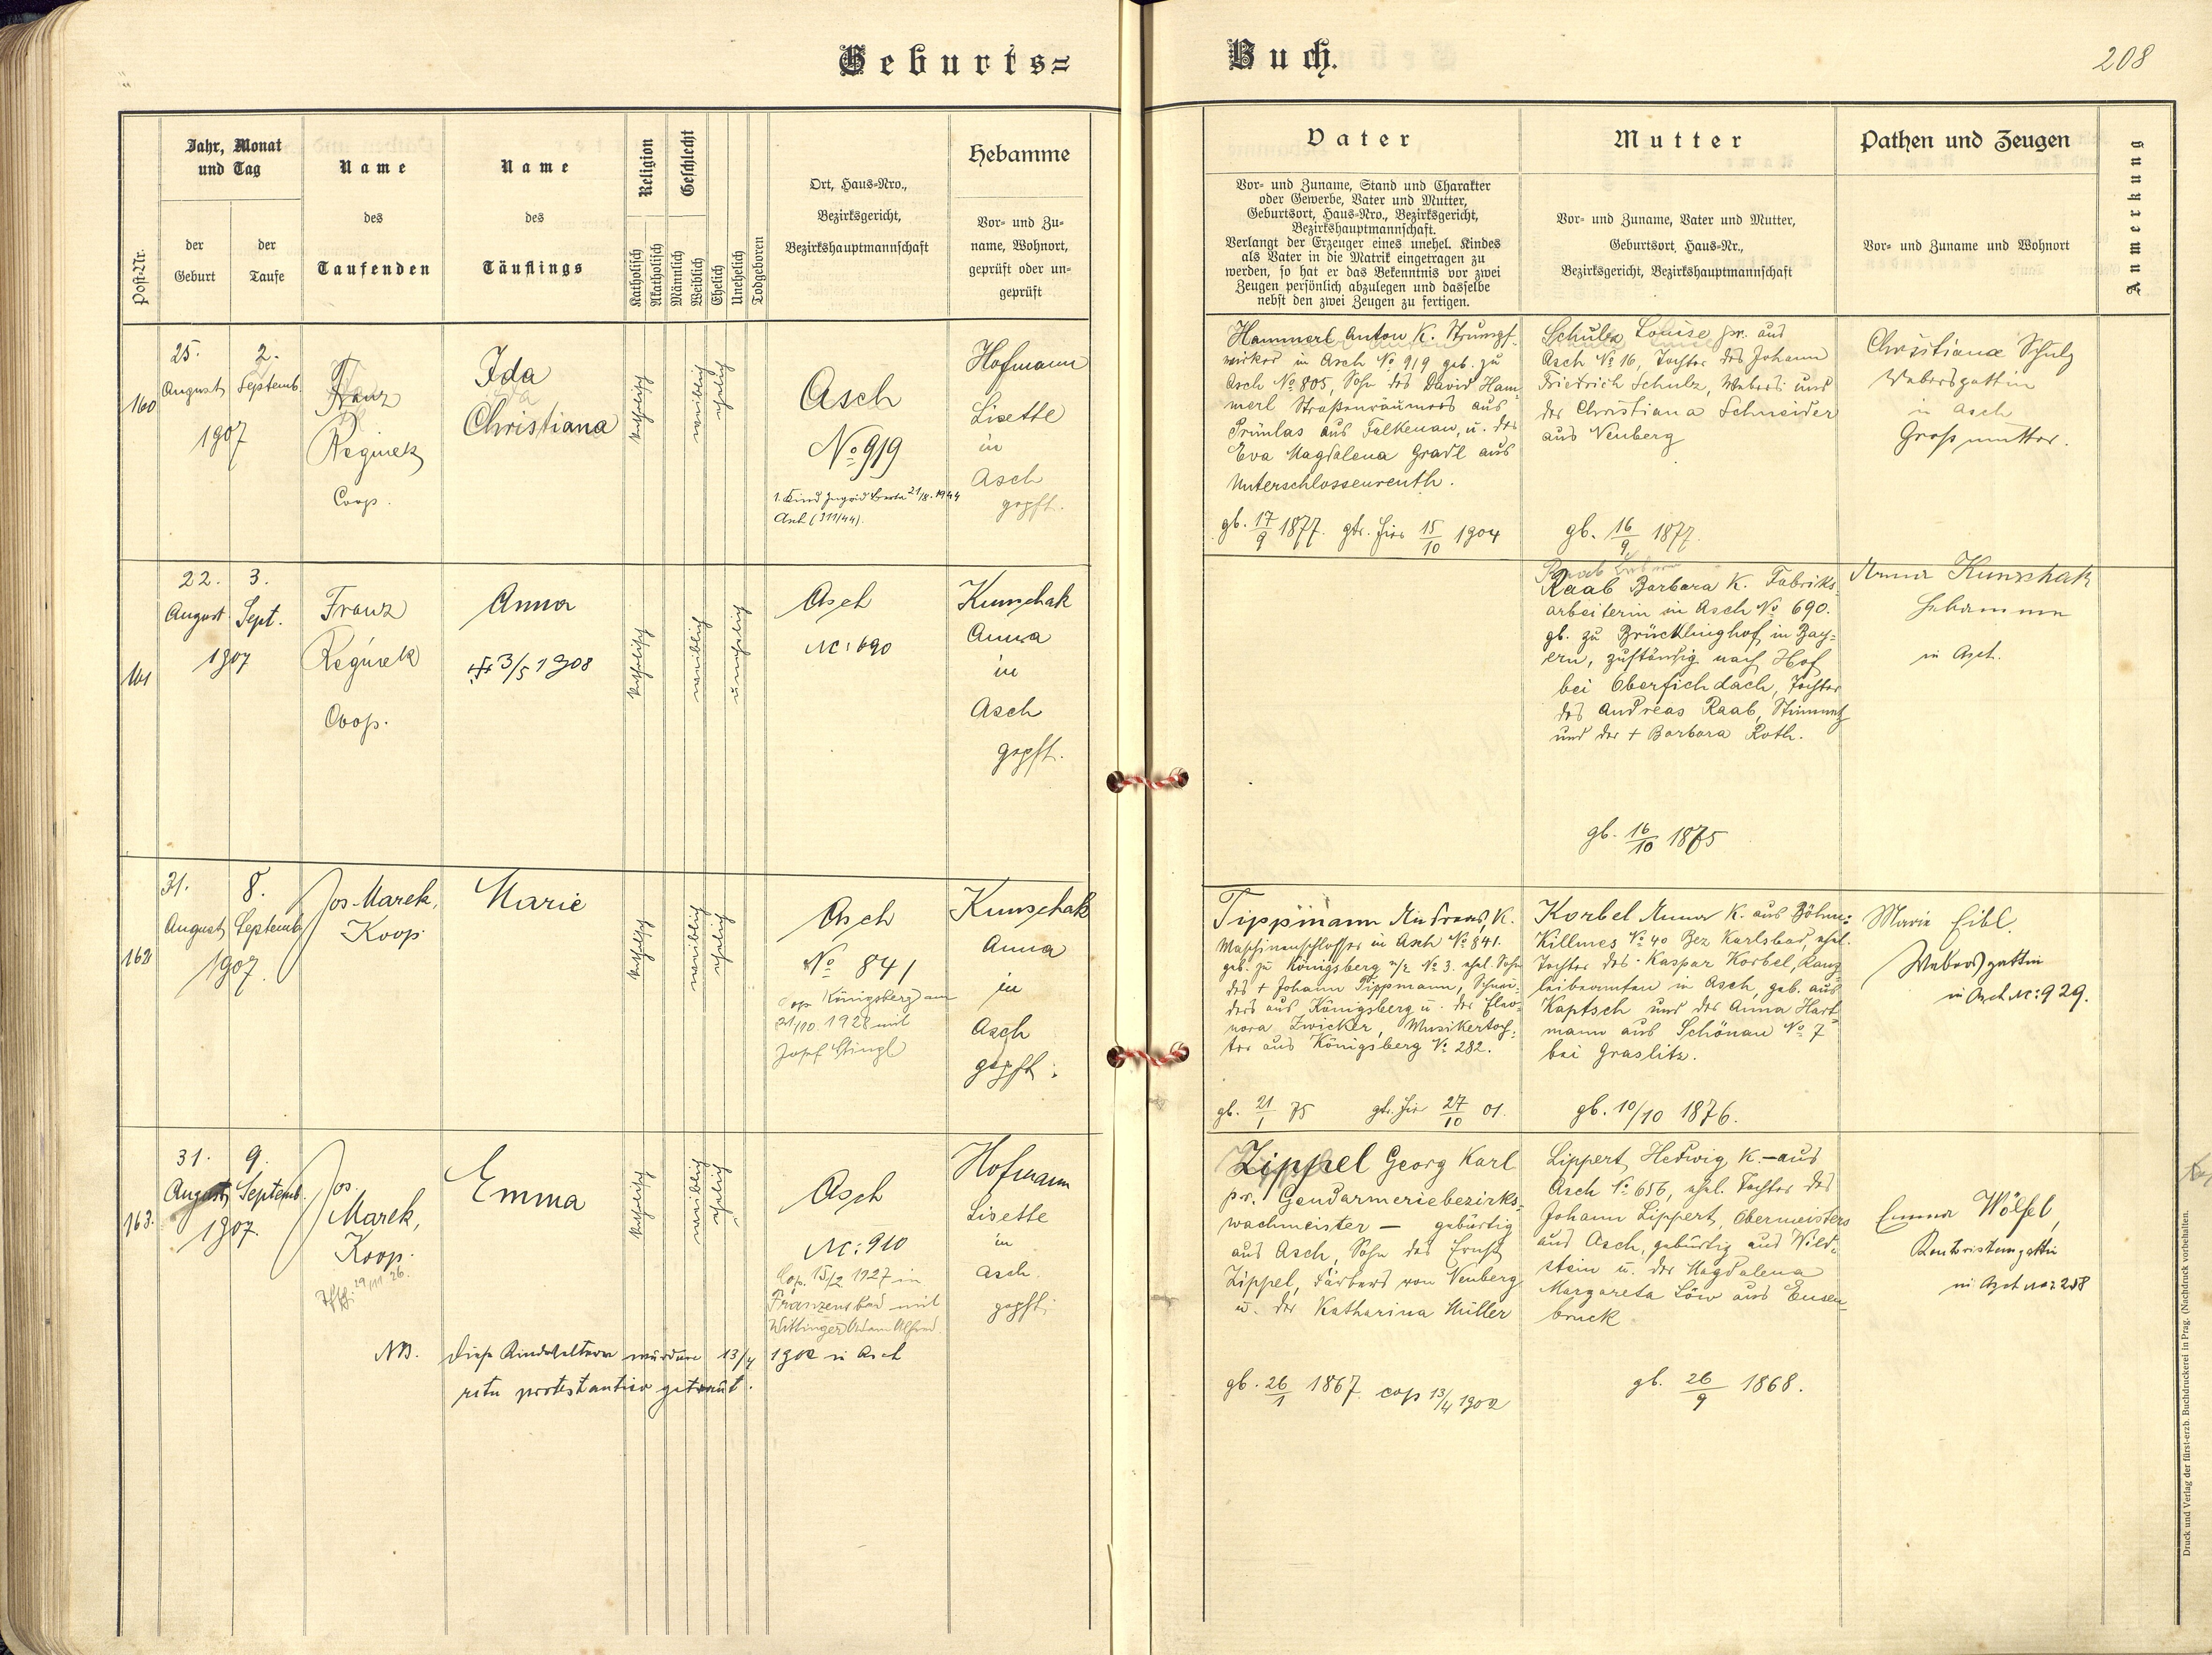 Geburts=
Buch.
208
Post-Nr.
Jahr, Monat
und Tag
der
Geburt
der
Taufe
Name
des
Taufenden
Name
des
Täuflings
Religion
Katholisch
Akatholisch
Geschlecht
Männlich
Weiblich
Ehelich
Unehelich
Todgeboren
Ort, Haus-Nro.,
Bezirksgericht,
Bezirkshauptmannschaft
Hebamme
Vor- und Zu-
name, Wohnort,
geprüft oder un-
geprüft
Vater
Vor- und Zuname, Stand und Charakter
oder Gewerbe, Vater und Mutter,
Geburtsort, Haus-Nro., Bezirksgericht,
Bezirkshauptmannschaft.
Verlangt der Erzeuger eines unehel. Kindes
als Vater in die Matrik eingetragen zu
werden, so hat er das Bekenntnis vor zwei
Zeugen persönlich abzulegen und dasselbe
nebst den zwei Zeugen zu fertigen.
Mutter
Vor- und Zuname, Vater und Mutter,
Geburtsort, Haus-Nr.,
Bezirksgericht, Bezirkshauptmannschaft
Pathen und Zeugen
Vor- und Zuname und Wohnort
Anmerkung
160
25.
August
2.
Septemb.
1907
Franz
Reginek
Coop.
Ida
Christiana
katholisch
weiblich
ehelich
Asch
No 919
1. Kind Ingrid Berta 21/8. 1944
Asch (311/44).
Hofmann
Lisette
in
Asch
gepft.
Hammerl Anton K. Strumpf-
wirker in Asch No 919 geb. zu
Asch No 805, Sohn des David Ham-
merl Straßenräumers aus
Prünlas aus Falkenau, u. der
Eva Magdalena Gradl aus
Unterschlossenreuth.
gb. 17/9 1877. gtr. hier 15/10 1904
Schulz Louise pr. aus
Asch No 16, Tochter des Johann
Friedrich Schulz, Webers und
der Christiana Schneider
aus Neuberg
gb. 16/9 1877.
Christiana Schulz
Webersgattin
in Asch
Großmutter.
161
22.
August
3.
Sept.
1907
Franz
Reginek
Coop.
Anna
3/5 1908
katholisch
weiblich
unehelich
Asch
NC: 690
Kunschak
Anna
in
Asch
gepft.
Raab Barbara K. Fabriks-
arbeiterin in Asch No 690.
gb. zu Brücklinghof in Bay-
ern, zuständig nach Hof
bei Oberfichdach, Tochter
des Andreas Raab,
und der + Barbara Roth.
gb. 16/10 1875
Anna Kunschak
Hebamme
in Asch.
162
31.
August
8.
Septemb.
1907.
Jos. Marek,
Koop.
Marie
katholisch
weiblich
ehelich
Asch
No 841
Cop. Königsberg am
21/10. 1928 mit
Josef Stingl
Kunschak
Anna
in
Asch
gepft.
Tippmann Andreas, K.
Maschinenschlosser in Asch No 841.
geb. zu Königsberg a/E No 3. ehel. Sohn
des + Johann Tippmann, Schnei-
ders aus Königsberg u. der Eleo-
nora Zwicker, Musikertoch-
ter aus Königsberg No 282.
gb. 21/1 75 gtr. hier 27/10 01.
Korbel Anna K. aus Böhm.
Killmes No 40 Bez Karlsbad, ehel.
Tochter des Kaspar Korbel, Kanz-
leibeamten in Asch, geb. aus
Kaptsch und der Anna Hart-
mann aus Schönau No 7
bei Graslitz.
gb. 10/10 1876.
Marie Eibl.
Webersgattin
in Asch NC: 929.
163.
31.
August
9.
Septemb.
1907.
Jos.
Marek,
Koop.
29/11. 26.
Emma
katholisch
weiblich
ehelich
Asch
NC: 910
Cop. 15/2 1927 in
Franzensbad mit
Wittinger Adam Alfred.
Hofmann
Lisette
in
Asch.
gepft.
NB. Diese Kindeseltern wurden 13/4 1902 in Asch
ritu protestantico getraut.
Zippel Georg Karl
pr. Gendarmeriebezirks-
wachmeister — gebürtig
aus Asch, Sohn des Ernst
Zippel, Färbers von Neuberg
u. der Katharina Müller
gb. 26/1 1867. cop 13/4 1902
Lippert Hedwig K. — aus
Asch No 656, ehel. Tochter des
Johann Lippert, Obermeisters
aus Asch, gebürtig aus Wild-
stein u. der Magdalena
Margareta Löw aus Ensen-
bruck
gb. 26/9 1868.
Emma Wölfel,
Kontoristensgattin
in Asch NC: 258
Druck und Verlag der fürst-erzb. Buchdruckerei in Prag. (Nachdruck vorbehalten.